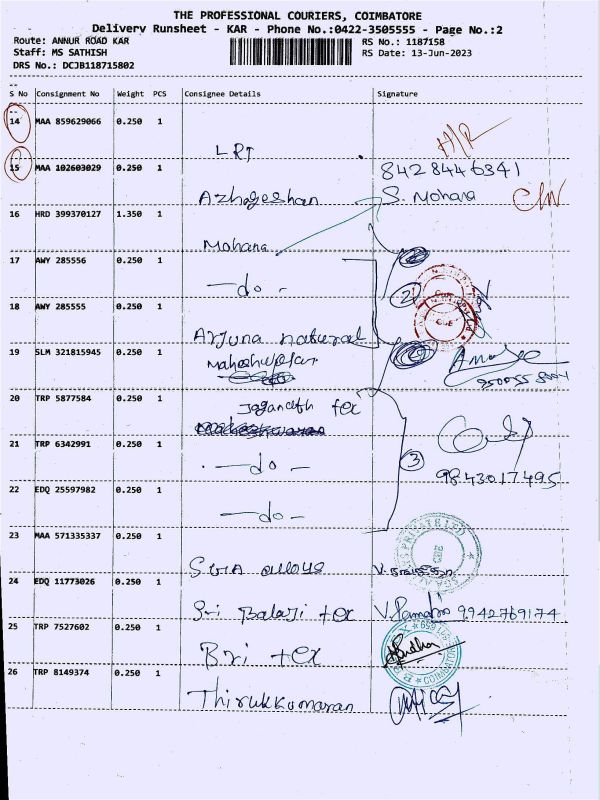 THE PROFESSIONAL COURIERS, COIMBATORE
Delivery Runsheet - KAR - Phone No.:0422-3505555 - Page No.:2
Route: ANNUR ROAD KAR
RS No.: 1187158
Staff: MS SATHISH
RS Date: 13-Jun-2023
DRS No.: DCJB118715802
S No Consignment No Weight PCS Consignee Details Signature
14 MAA 859629066 0.250 1
LRT
H/R
15 MAA 102603029 0.250 1
8428446341
Azhageshan
S. Mohana
16 HRD 399370127 1.350 1
Mohana
17 AWY 285556 0.250 1
-do-
2
18 AWY 285555 0.250 1
Arjuna natural
19 SLM 321815945 0.250 1
Maheshwaran
20 TRP 5877584 0.250 1
Jaganath tex
21 TRP 6342991 0.250 1
-do-
3
9843017495
22 EDQ 25597982 0.250 1
-do-
23 MAA 571335337 0.250 1
alloys
24 EDQ 11773026 0.250 1
Sri Balaji tex
9942769174
25 TRP 7527602 0.250 1
Bri tex
Sudha
26 TRP 8149374 0.250 1
Thirukkumaran